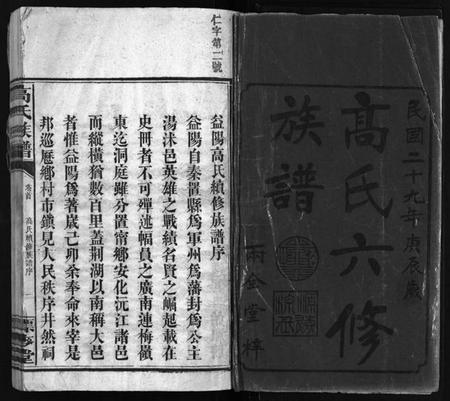 民國二十九年庚辰歲
高氏六修
族譜
兩全堂梓
仁字第二號
益陽高氏續修族譜序
益陽自秦置縣爲軍州爲藩封爲公主
湯沐邑英雄之戰績名賢之崛起載在
史冊者不可殫述幅員之廣南連梅嶺
東迄洞庭雖分置甯鄉安化沅江諸邑
而縱橫猶數百里蓋荆湖以南稱大邑
者惟益陽爲著歲己卯余奉命來宰是
邦巡歷鄉村市鎮見人民秩序井然祠
高氏族譜
卷首
高氏續修族譜序